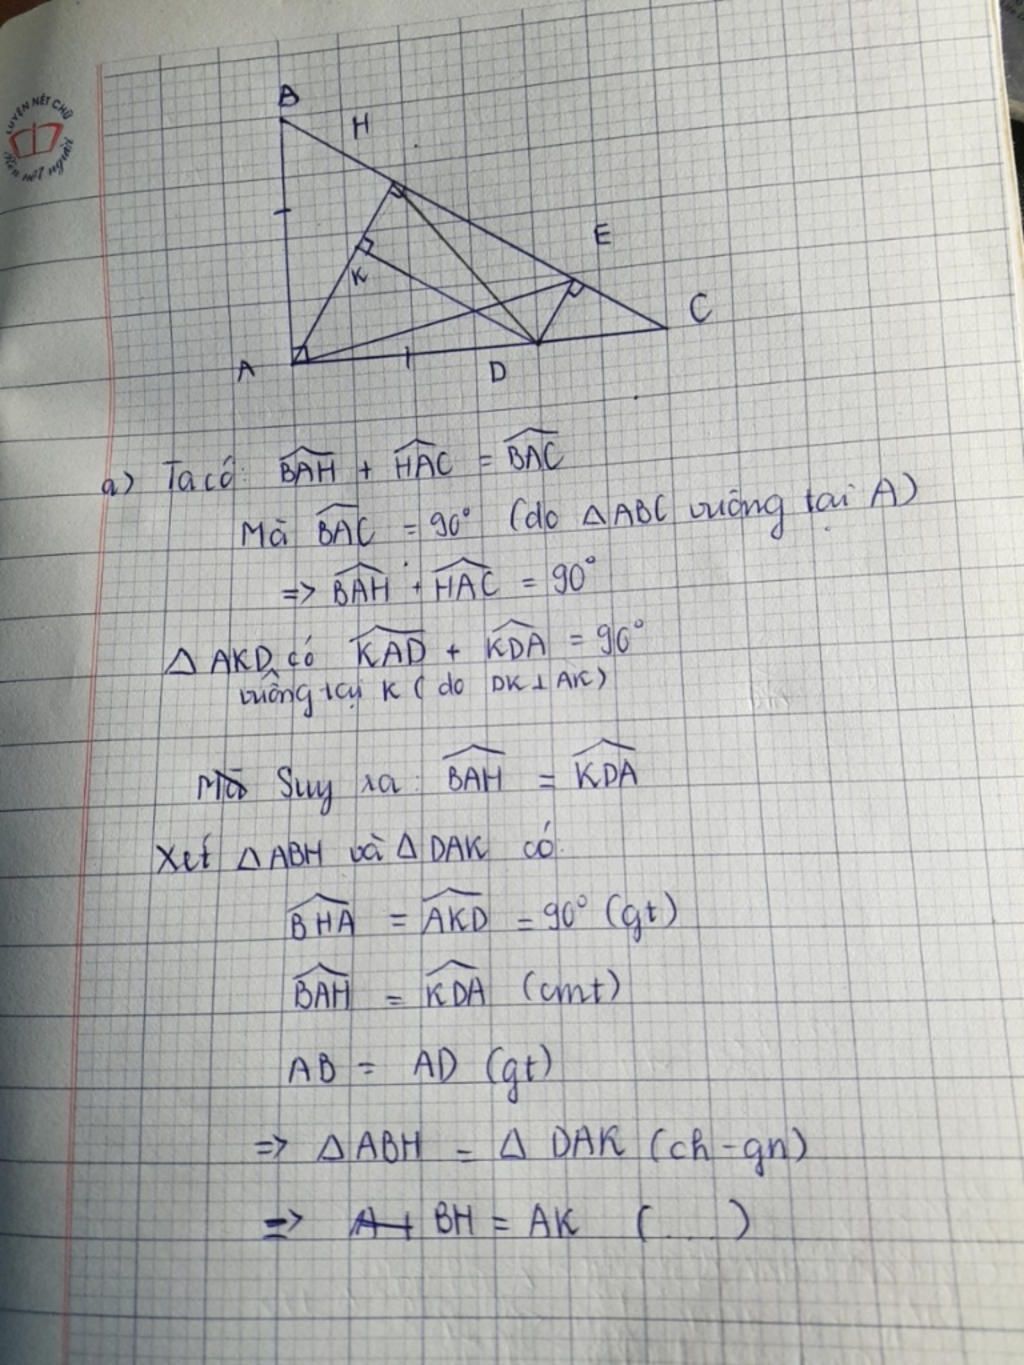 LUYỆN NÉT CHỮ
Rèn nết người
B
H
E
K
C
A
D
a) Ta có: BAH + HAC = BAC
Mà BAC = 90° (do △ABC vuông tại A)
=> BAH + HAC = 90°
△AKD có KAD + KDA = 90°
vuông tại K (do DK⊥AK)
Mà Suy ra: BAH = KDA
Xét △ABH và △DAK có:
BHA = AKD = 90° (gt)
BAH = KDA (cmt)
AB = AD (gt)
=> △ABH = △DAK (ch-gn)
=> BH = AK (...)